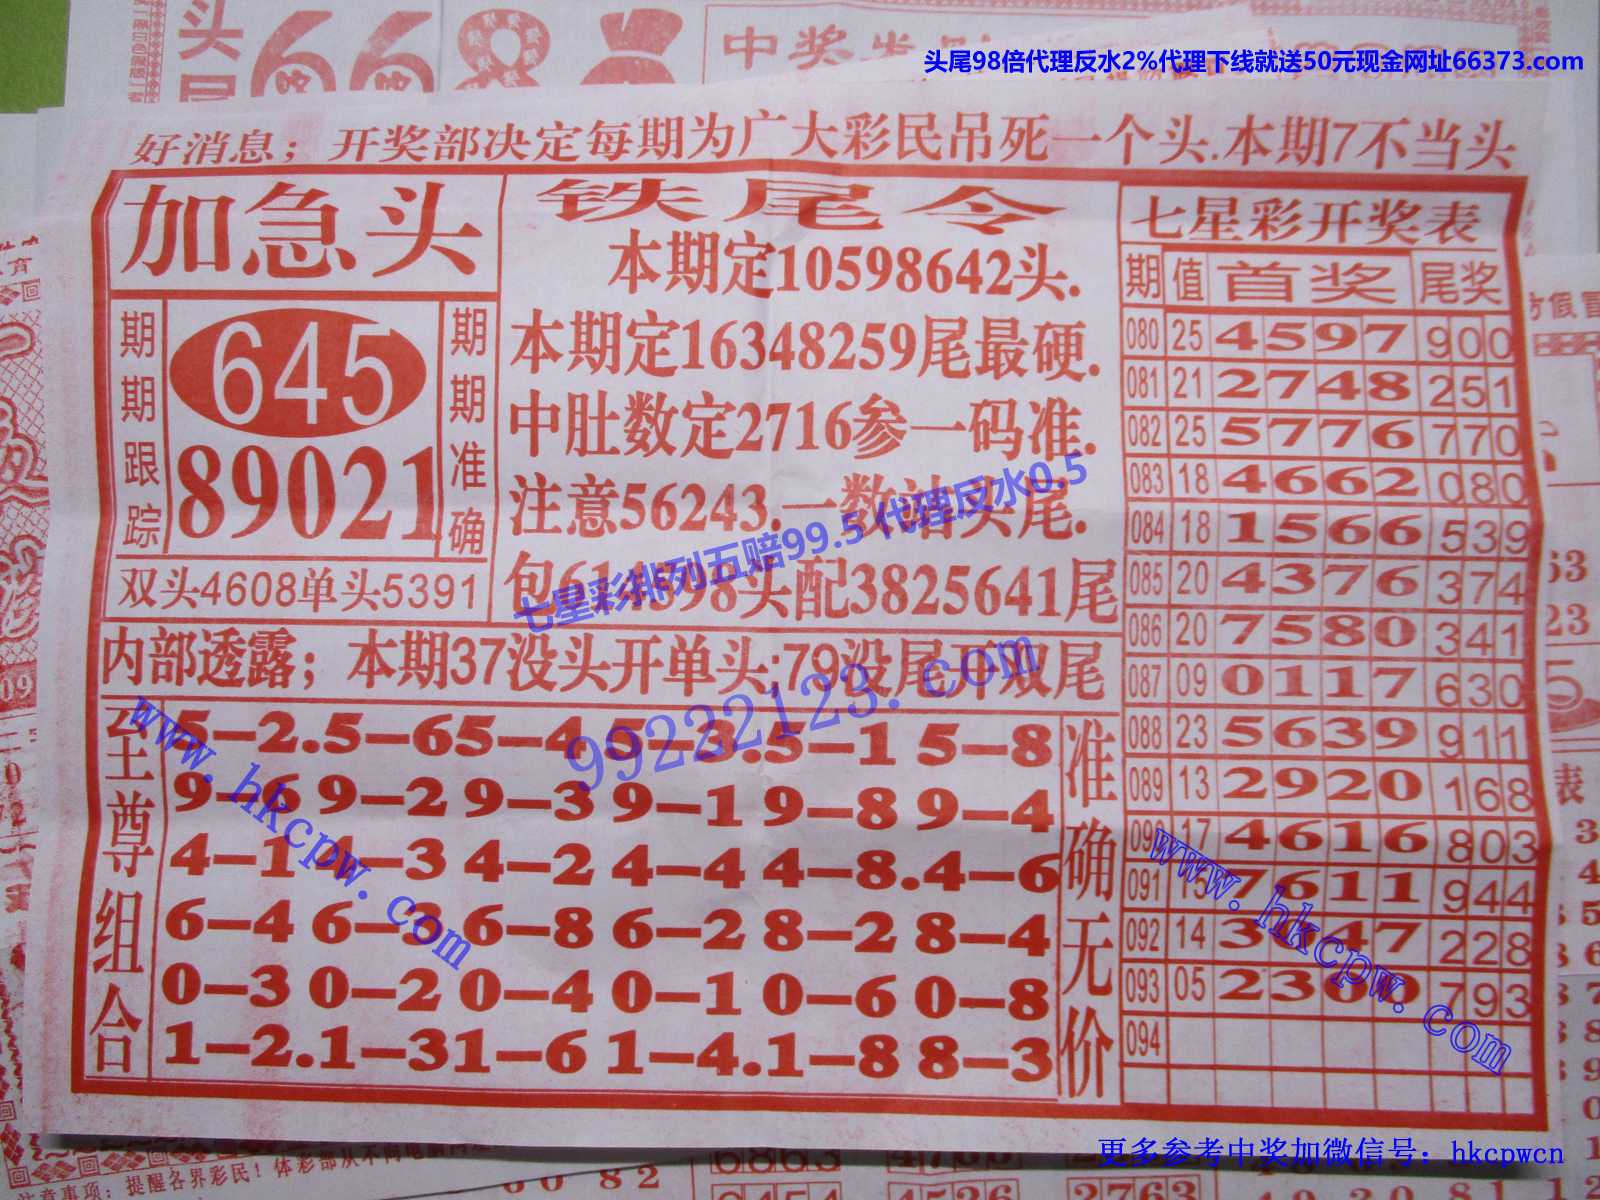 头尾98倍代理反水2%代理下线就送50元现金网址66373.com
好消息；开奖部决定每期为广大彩民吊死一个头.本期7不当头
加急头
期期跟踪
645
89021
期期准确
双头4608单头5391
铁尾令
本期定10598642头.
本期定16348259尾最硬.
中肚数定2716参一码准.
注意56243.一数站头尾.
头配3825641尾
七星彩排列五赔99.5 代理反水0.5
内部透露；本期37没头开单头;79没尾开双尾
99222123.com
至尊组合
5-2.5-65-4 5-3.5-1 5-8
9-6 9-2 9-3 9-1 9-8 9-4
4-1 4-3 4-2 4-4 4-8.4-6
6-4 6-3 6-8 6-2 8-2 8-4
0-3 0-2 0-4 0-1 0-6 0-8
1-2.1-31-6 1-4.1-8 8-3
准确无价
www.hkcpw.com
七星彩开奖表
期 值 首奖 尾奖
080 25 4597 900
081 21 2748 251
082 25 5776 770
083 18 4662 080
084 18 1566 539
085 20 4376 374
086 20 7580 341
087 09 0117 630
088 23 5639 911
089 13 2920 168
090 17 4616 803
091 15 7611 944
092 14 3 47 228
093 05 230 793
094
www.hkcpw.com
更多参考中奖加微信号：hkcpwcn
注意事项：提醒各界彩民！体彩部从不